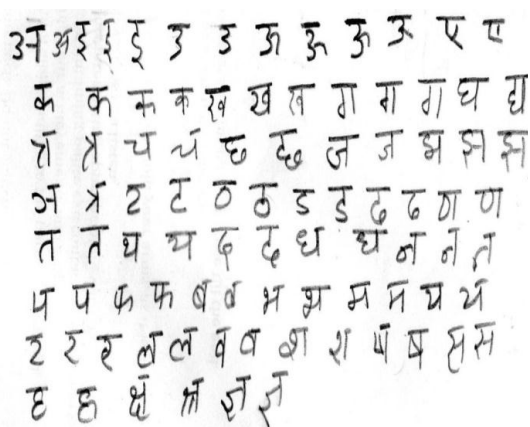 अ अ इ इ इ उ उ ऊ ऊ ऊ ऊ ए ए
क क क क ख ख ख ग ग ग घ घ
त्र त्र च चं छ छ ज ज झ झ झ
ञ त्र ट ट ठ ठ ड ड ढ ढ ण ण
त त थ थ द द ध ध न न त्र
प प फ फ ब ब भ भ म म य यं
र र र ल ल व व श श ष ष स स
ह ह क्षं त्र ज्ञ ज्ञ